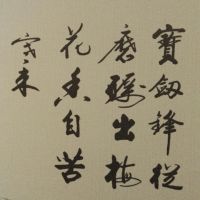 寶劍鋒從
磨礪出梅
花香自苦
寒來